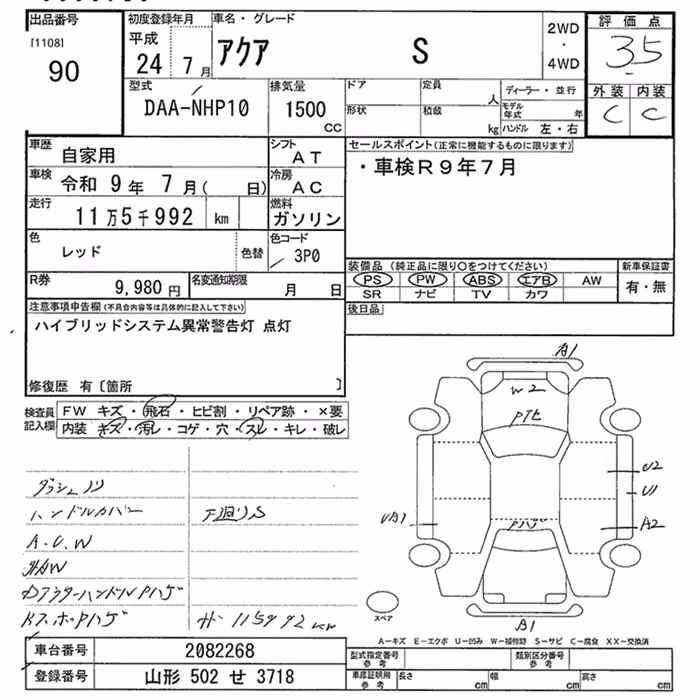 出品番号
[1108]
90
初度登録年月
平成
24 7月
車名・グレード
アクア S
2WD
・
4WD
評価点
3.5
外装 内装
C C
型式
DAA-NHP10
排気量
1500
CC
ドア 定員 人
形状 積載 kg
ディーラー・並行
モデル年式 年
ハンドル 左・右
車歴 自家用
シフト AT
車検 令和 9年 7月( 日)
冷房 AC
走行 11万5千992 km
燃料 ガソリン
色 レッド 色替
色コード 3P0
R券 9,980円
名変通知期限 月 日
セールスポイント(正常に機能するものに限ります)
・車検R9年7月
装備品(純正品に限り○をつけてください)
PS PW ABS エアB AW
SR ナビ TV カワ
新車保証書
有・無
後日品
注意事項申告欄(不具合内容等は具体的に記入して下さい)
ハイブリッドシステム異常警告灯 点灯
修復歴 有〔箇所 〕
検査員記入欄
FW キズ・飛石・ヒビ割・リペア跡・×要
内装 キズ・汚レ・コゲ・穴・スレ・キレ・破レ
ハンドルカバー
下廻りS
A.U.W
Dアウターハンドルハゲ
115992km
A1
W2
U2
U1
A2
UA1
B1
スペア
A-キズ E-エクボ U-凹み W-補修跡 S-サビ C-腐食 XX-交換済
車台番号 2082268
登録番号 山形 502 せ 3718
型式指定番号 参考
類別区分番号 参考
車庫証明用 参考
長さ cm 幅 cm 高さ cm